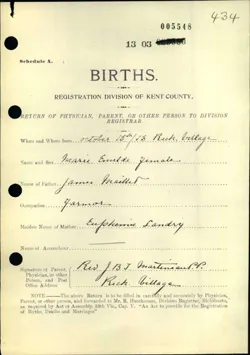 005548
434
13 03
Schedule A.
BIRTHS.
REGISTRATION DIVISION OF KENT COUNTY.
RETURN OF PHYSICIAN, PARENT, OR OTHER PERSON TO DIVISION
REGISTRAR
When and Where born October 15th/13 Rich. Village
Name and Sex Marie Female
Name of Father James Maillet
Occupation Farmer
Maiden Name of Mother Euphemie Landry
Name of Accoucheur
Signature of Parent,
Physician, or other
Person, and Post
Office Address
Rev J B J Martineau P.P.
Rich Village
NOTE.—The above Return is to be filled in correctly and accurately by Physician,
Parent, or other person, and forwarded to Mr. H. Division Registrar,
as required by Act of Assembly 50th Vic., Cap. V. "An Act to provide for the Registration of
Births, Deaths and Marriages."